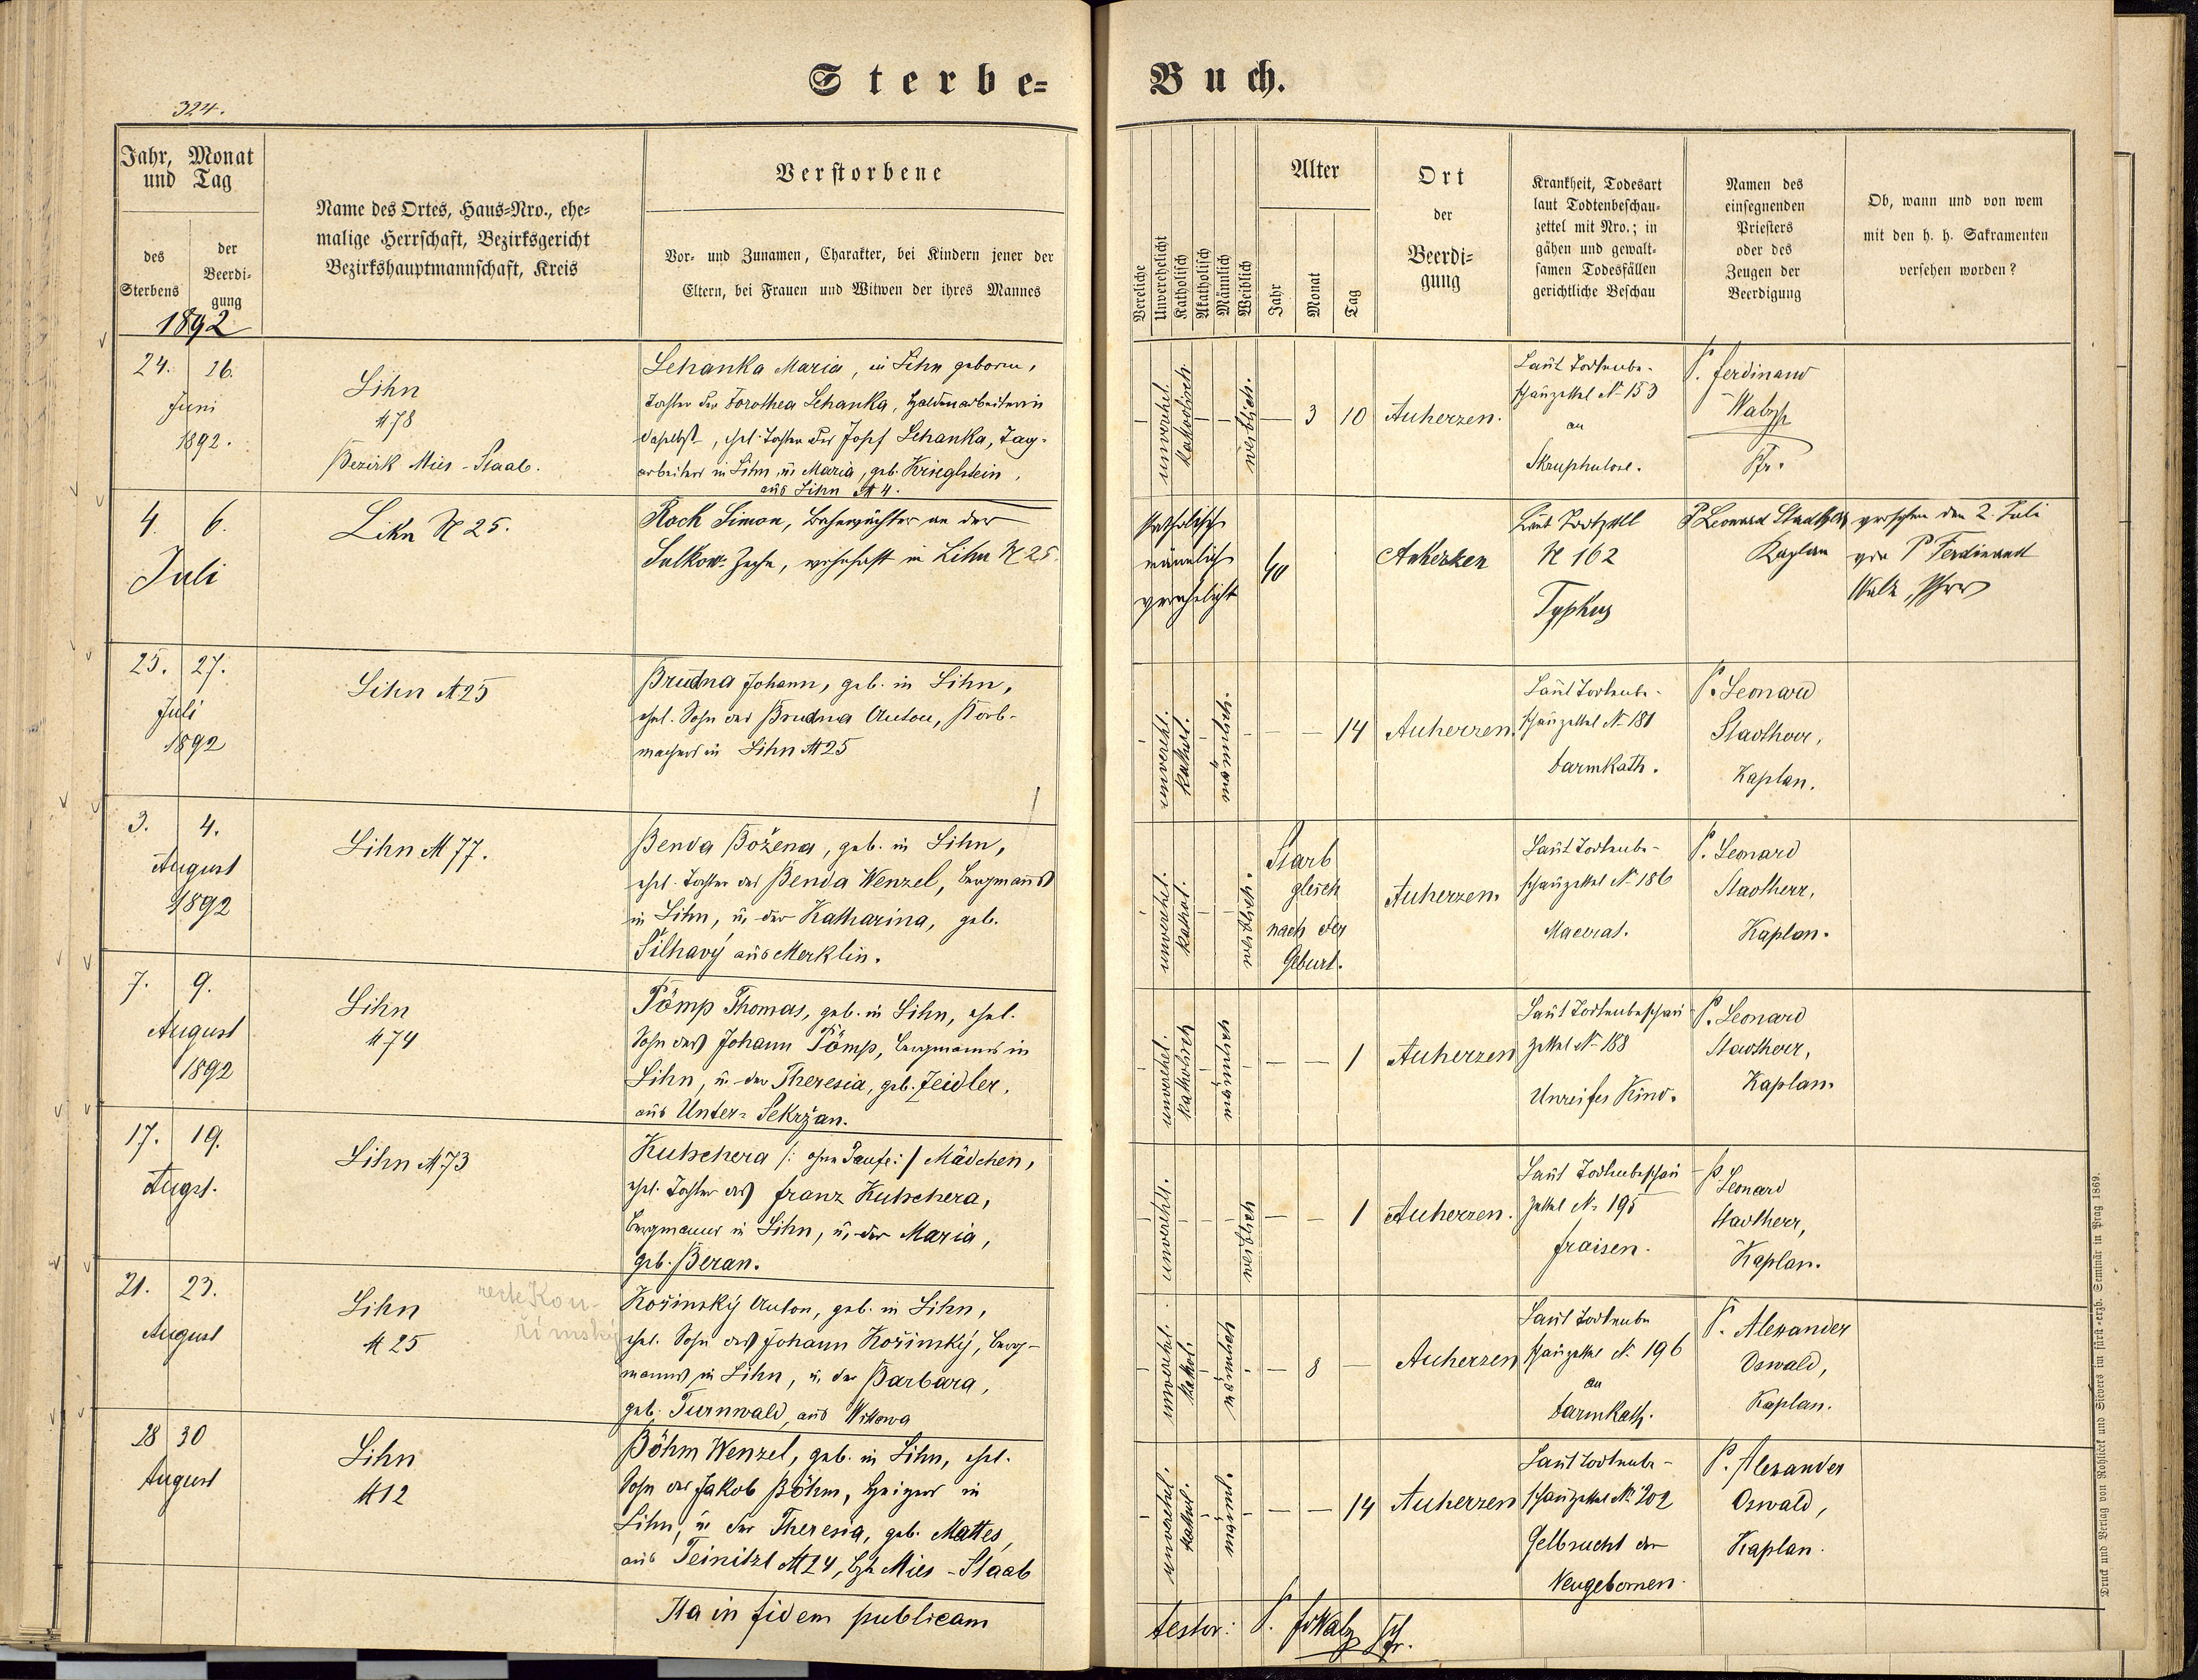 Sterbe-
Buch.
324.
Jahr, Monat
und Tag
des
Sterbens
der
Beerdi-
gung
1892
Name des Ortes, Haus-Nro., ehe-
malige Herrschaft, Bezirksgericht
Bezirkshauptmannschaft, Kreis
Verstorbene
Vor- und Zunamen, Charakter, bei Kindern jener der
Eltern, bei Frauen und Witwen der ihres Mannes
Vereliche
Unverehelicht
Katholisch
Akatholisch
Männlich
Weiblich
Alter
Jahr
Monat
Tag
Ort
der
Beerdi-
gung
Krankheit, Todesart
laut Todtenbeschau-
zettel mit Nro.; in
gähen und gewalt-
samen Todesfällen
gerichtliche Beschau
Namen des
einsegnenden
Priesters
oder des
Zeugen der
Beerdigung
Ob, wann und von wem
mit den h. h. Sakramenten
versehen worden?
24. 26.
Juni
1892.
Lihn
N 78
Bezirk Mies-Staab.
Lehanka Maria, in Lihn geboren,
Tochter der Dorothea Lehanka, Haldenarbeiterin
daselbst, ehel. Tochter des Josef Lehanka, Tag-
arbeiters in Lihn, u. Maria, geb. Krieglstein,
aus Lihn N 4.
unverehel.
katholisch.
weiblich.
— 3 10
Auherzen.
Laut Todtenbe-
schauzettel N 153
an
Skruphulose.
P. Ferdinand
Walzh
Pfr.
4. 6.
Juli
Lihn N 25.
Rock Simon, Bahnwächter an der
Sulkow-Zeche, wohnhaft in Lihn N 25.
katholisch
männlich
verehelicht
40
Auherzen
Laut Todtzettl
N 162
Typhus
P Leonard Stadtherr
Kaplan
versehen den 2. Juli
von P Ferdinand
25. 27.
Juli
1892
Lihn N 25
Brudna Johann, geb. in Lihn,
ehel. Sohn des Brudna Anton, Korb-
machers in Lihn N 25
unverehl.
kathol.
männlich.
— — 14
Auherzen.
Laut Todtenbe-
schauzettel N 181
Darmkath.
P. Leonard
Stadtherr,
Kaplan.
3. 4.
August
1892
Lihn N 77.
Benda Božena, geb. in Lihn,
ehel. Tochter des Benda Wenzel, Bergmanns
in Lihn, u. der Katharina, geb.
Šilhavý aus Merklin.
unverehel.
kathol.
weiblich.
Starb
gleich
nach der
Geburt.
Auherzen.
Laut Todtenbe-
schauzettel N 186
Macerat.
P. Leonard
Stadtherr,
Kaplan.
7. 9.
August
1892
Lihn
N 74
Tömp Thomas, geb. in Lihn, ehel.
Sohn des Johann Tömp, Bergmanns in
Lihn, u. der Theresia, geb. Zeidler,
aus Unter-Sekržan.
unverehel.
katholisch
männlich
— — 1
Auherzen
Laut Todtenbeschau
zettel N 188
Unreifes Kind.
P. Leonard
Stadtherr,
Kaplan.
17. 19.
Augst.
Lihn N 73
Kutschera /: ohne Taufe :/ Mädchen,
ehel. Tochter des Franz Kutschera,
Bergmanns in Lihn, u. der Maria,
geb. Beran.
unverehl.
weiblich
— — 1
Auherzen.
Laut Todtenbeschau
zettel N. 195
Fraisen.
P. Leonard
Stadtherr,
Kaplan.
21. 23.
August
Lihn
N 25
recte Kou-
římský
Kořinský Anton, geb. in Lihn,
ehel. Sohn des Johann Kořinský, Berg-
manns in Lihn, u. der Barbara,
geb. Turnwald, aus Wittowa
unverehel.
kathol.
männlich
— 8 —
Auherzen
Laut Todtenbe
schauzettel N. 196
an
Darmkath.
P. Alexander
Oswald,
Kaplan.
28 30
August
Lihn
N 12
Böhm Wenzel, geb. in Lihn, ehel.
Sohn des Jakob Böhm, Heizers in
Lihn, u. der Theresia, geb. Mattes,
aus Teinitzl N 24, Bzk Mies-Staab
unverehel.
kathol.
männl.
— — 14
Auherzen
Laut Todtenbe-
schauzettel N. 202
Gelbsucht der
Neugebornen.
P. Alexander
Oswald,
Kaplan.
Ita in fidem publicam
testor: P. F. Walzh Pfr.
Druck und Verlag von Rohlicek und Sievers im fürst-erzb. Seminär in Prag 1869.